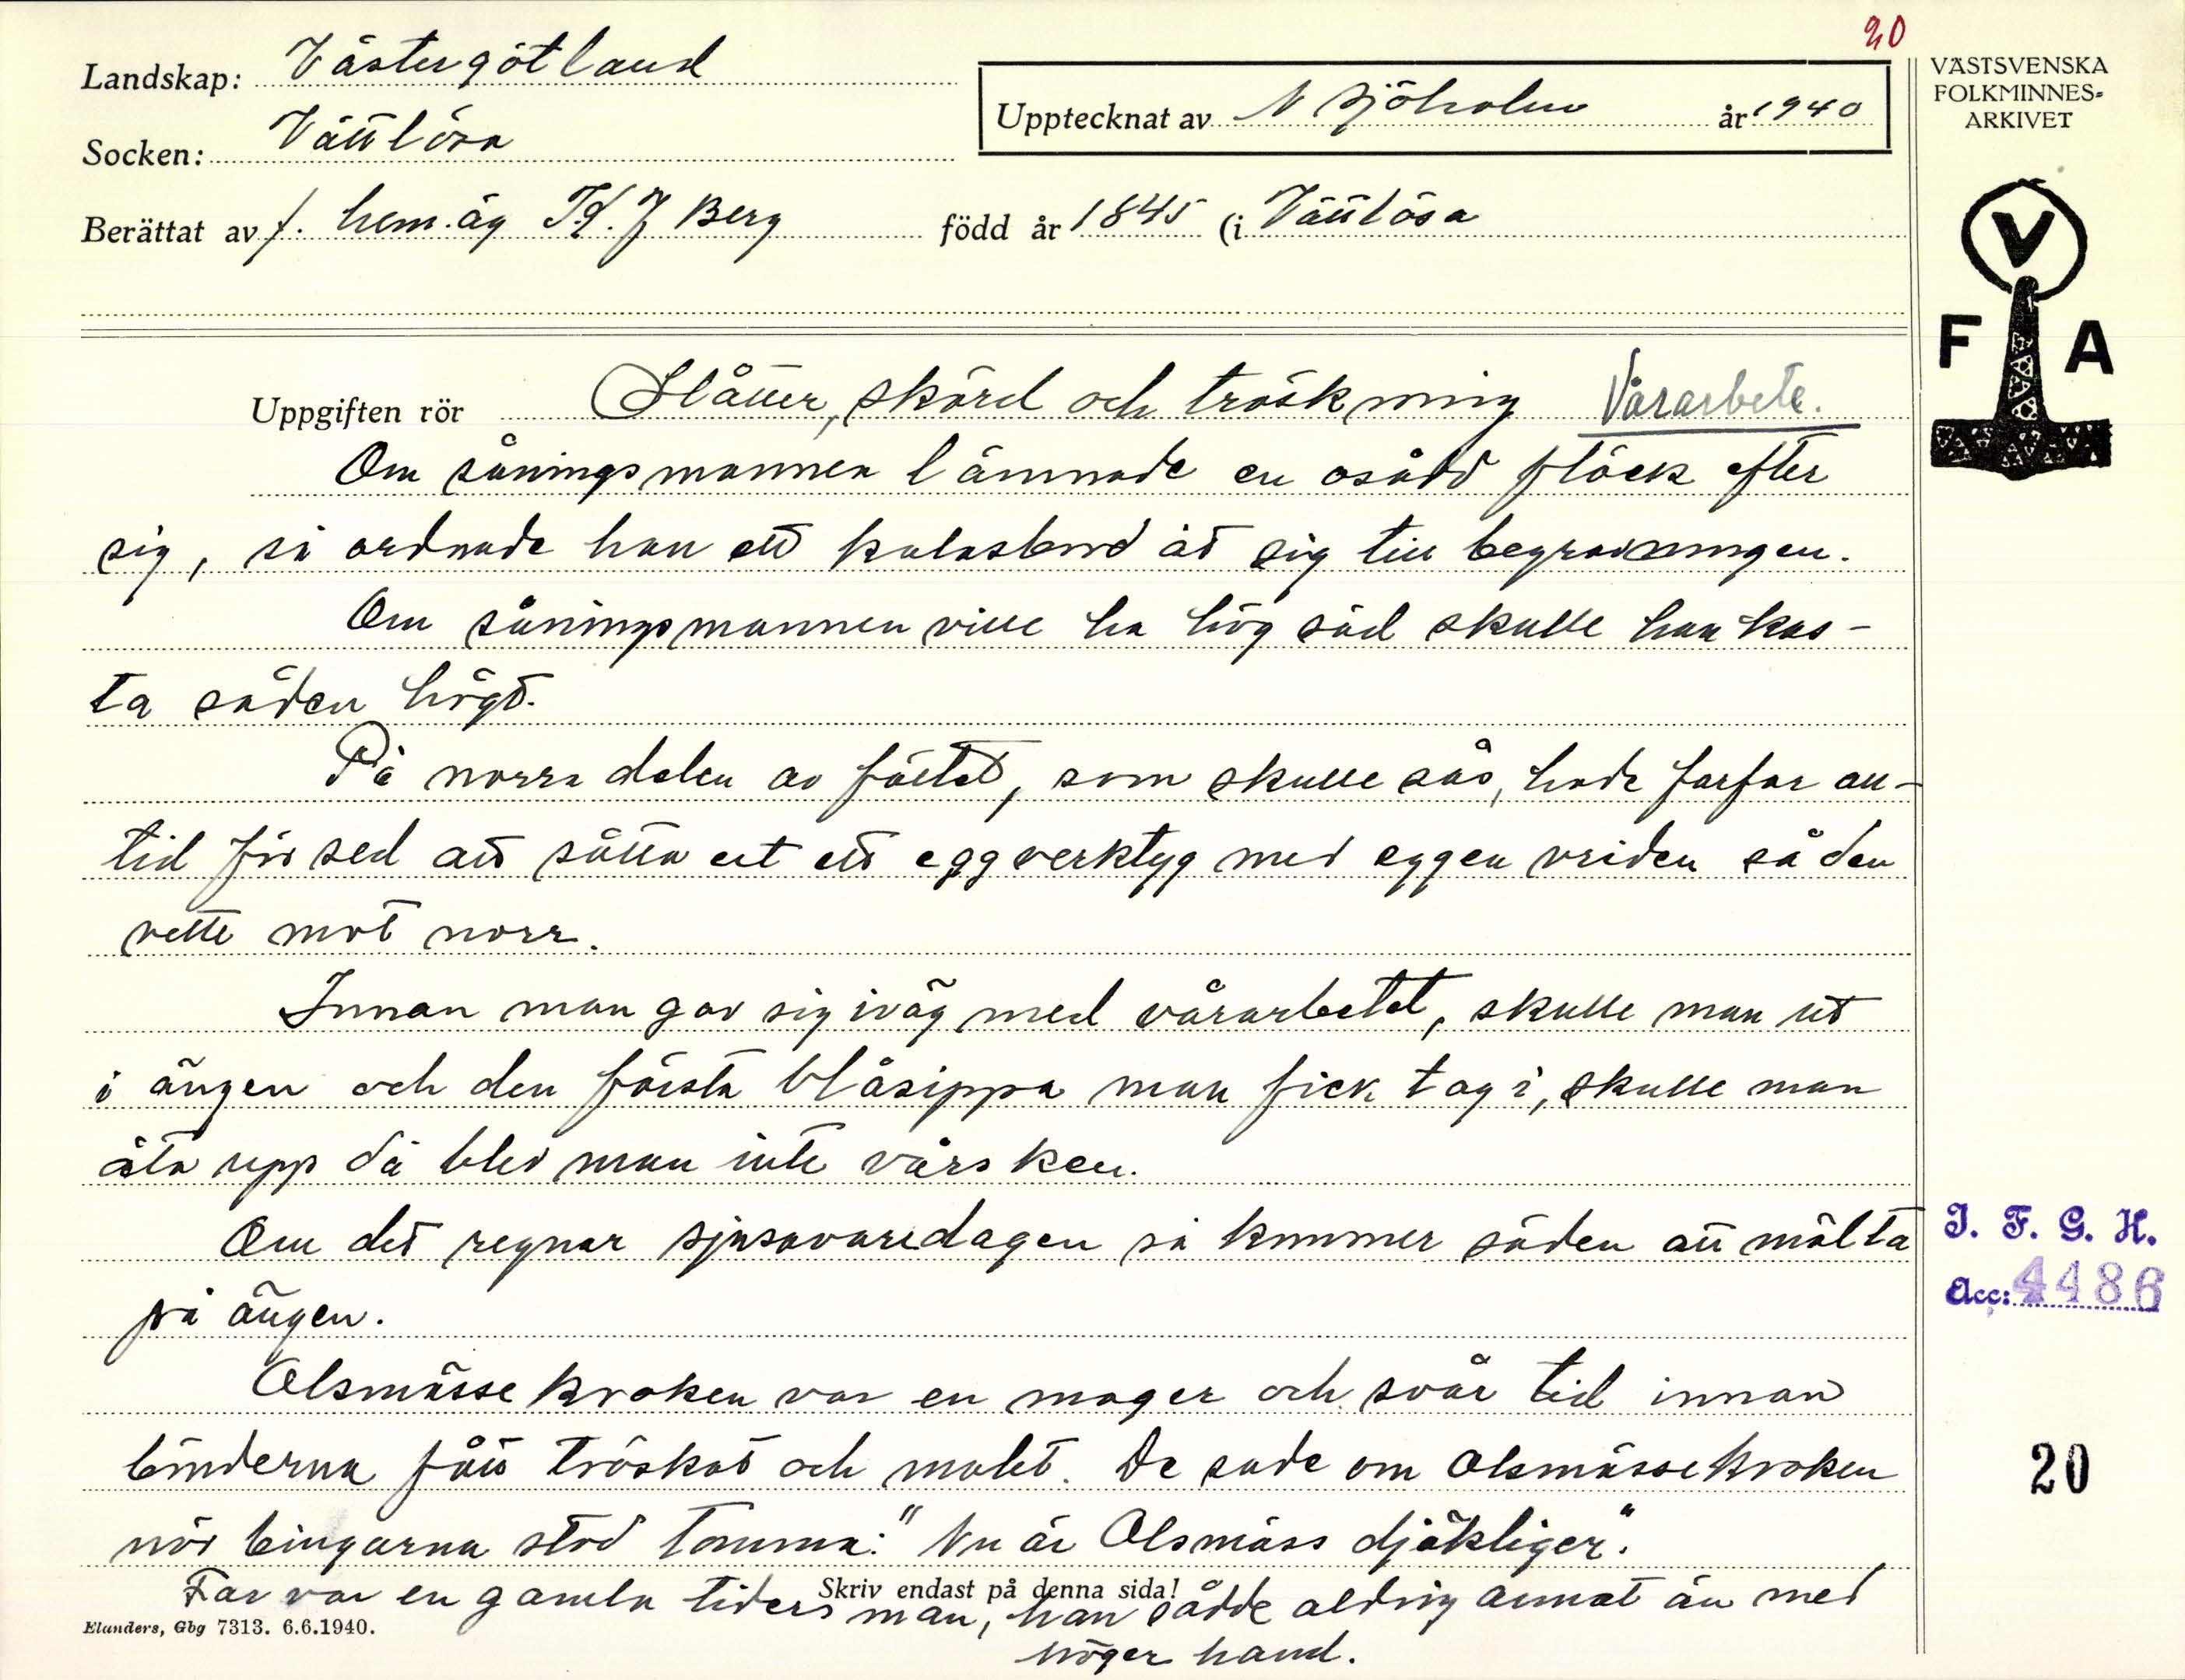 20
Landskap: Västergötland
Socken: Vättlösa
Upptecknat av N Sjöholm år 1940
Berättat av f. hem. äg J. Berg född år 1845 (i Vättlösa
VÄSTSVENSKA
FOLKMINNES=
ARKIVET
V
F A
Uppgiften rör Slåtter, skörd och tröskning Vårarbete.
Om såningsmannen lämnade en osådd fläck efter
sig, så ordnade han ett kalasbord åt sig till begravningen.
Om såningsmannen ville ha hög säd skulle han kas-
ta säden högt.
På norra delen av fältet, som skulle sås, hade farfar all-
tid för sed att sätta ut ett eggverktyg med eggen vriden så den
vette mot norr.
Innan man gav sig iväg med vårarbetet, skulle man ut
i ängen och den första blåsippa man fick tag i, skulle man
äta upp då blev man inte vårsken.
Om det regnar sjusovaredagen så kommer säden att mälta
på ängen.
Olsmässekroken var en mager och svår tid innan
bönderna fått tröskat och malet. De sade om Olsmässekroken
när bingarna stod tomma: "Nu är Olsmäss djäkliger".
Far var en gamla tiders man, han sådde aldrig annat än med
höger hand.
Skriv endast på denna sida!
Elanders, Gbg 7313. 6.6.1940.
I. F. G. H.
Acc: 4486
20